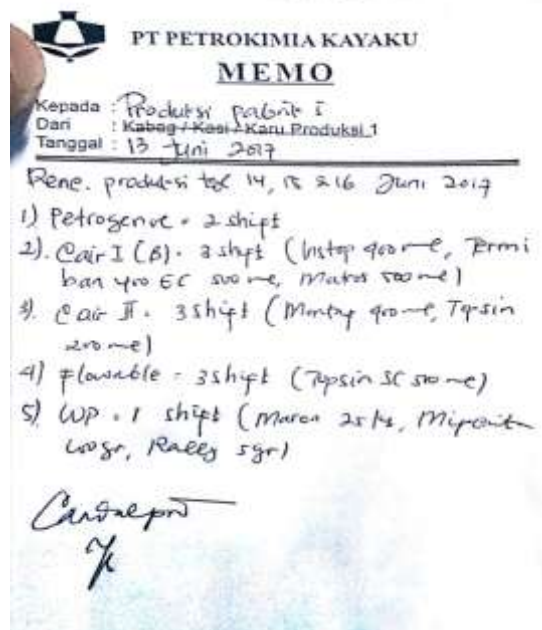 PT PETROKIMIA KAYAKU
MEMO
Kepada : Produksi Pabrik I
Dari : Kabag / Kasi / Karu Produksi 1
Tanggal : 13 Juni 2017
Renc. produksi tgl 14, 15 & 16 Juni 2017
1) Petrogenol = 2 shift
2). Cair I (B). 3 shift (Instop 400 ml, Termi
ban 400 EC 500 ml, Matos 500 ml)
3). Cair II. 3 shift (400 ml, Topsin
200 ml)
4) Flowable = 3 shift (Topsin SC 500 ml)
5) WP . 1 shift (25 kg, Mipcinta
100 gr, 5 gr)